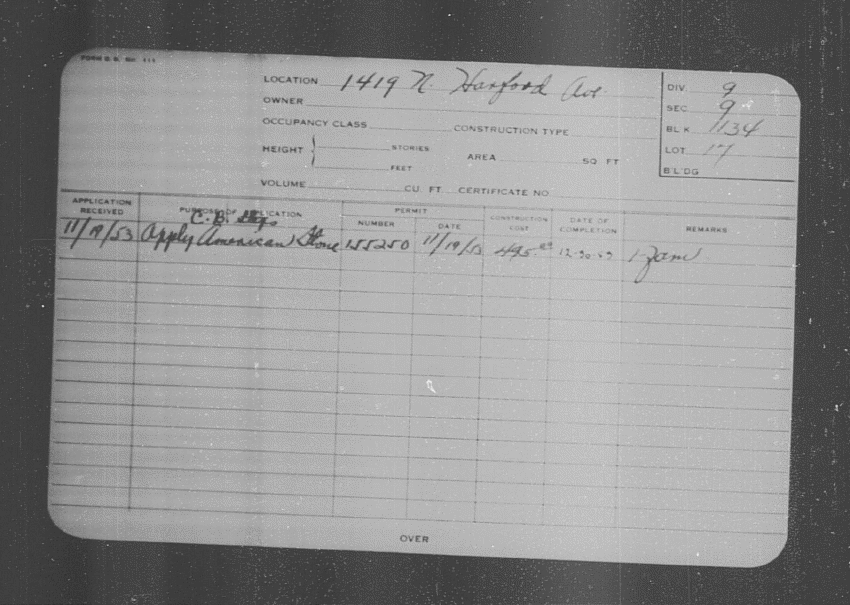 FORM B. B. No. 111
LOCATION 1419 N. Harford Ave.
OWNER
OCCUPANCY CLASS CONSTRUCTION TYPE
HEIGHT STORIES FEET AREA SQ FT
VOLUME CU. FT. CERTIFICATE NO
DIV. 9
SEC 9
BL'K. 1134
LOT 17
B'L'DG
APPLICATION RECEIVED PURPOSE OF APPLICATION PERMIT NUMBER DATE CONSTRUCTION COST DATE OF COMPLETION REMARKS
C. B. Steps
11/19/53 Apply American Stone 155250 11/19/53 495.00 12-30-53 1-Fam
OVER